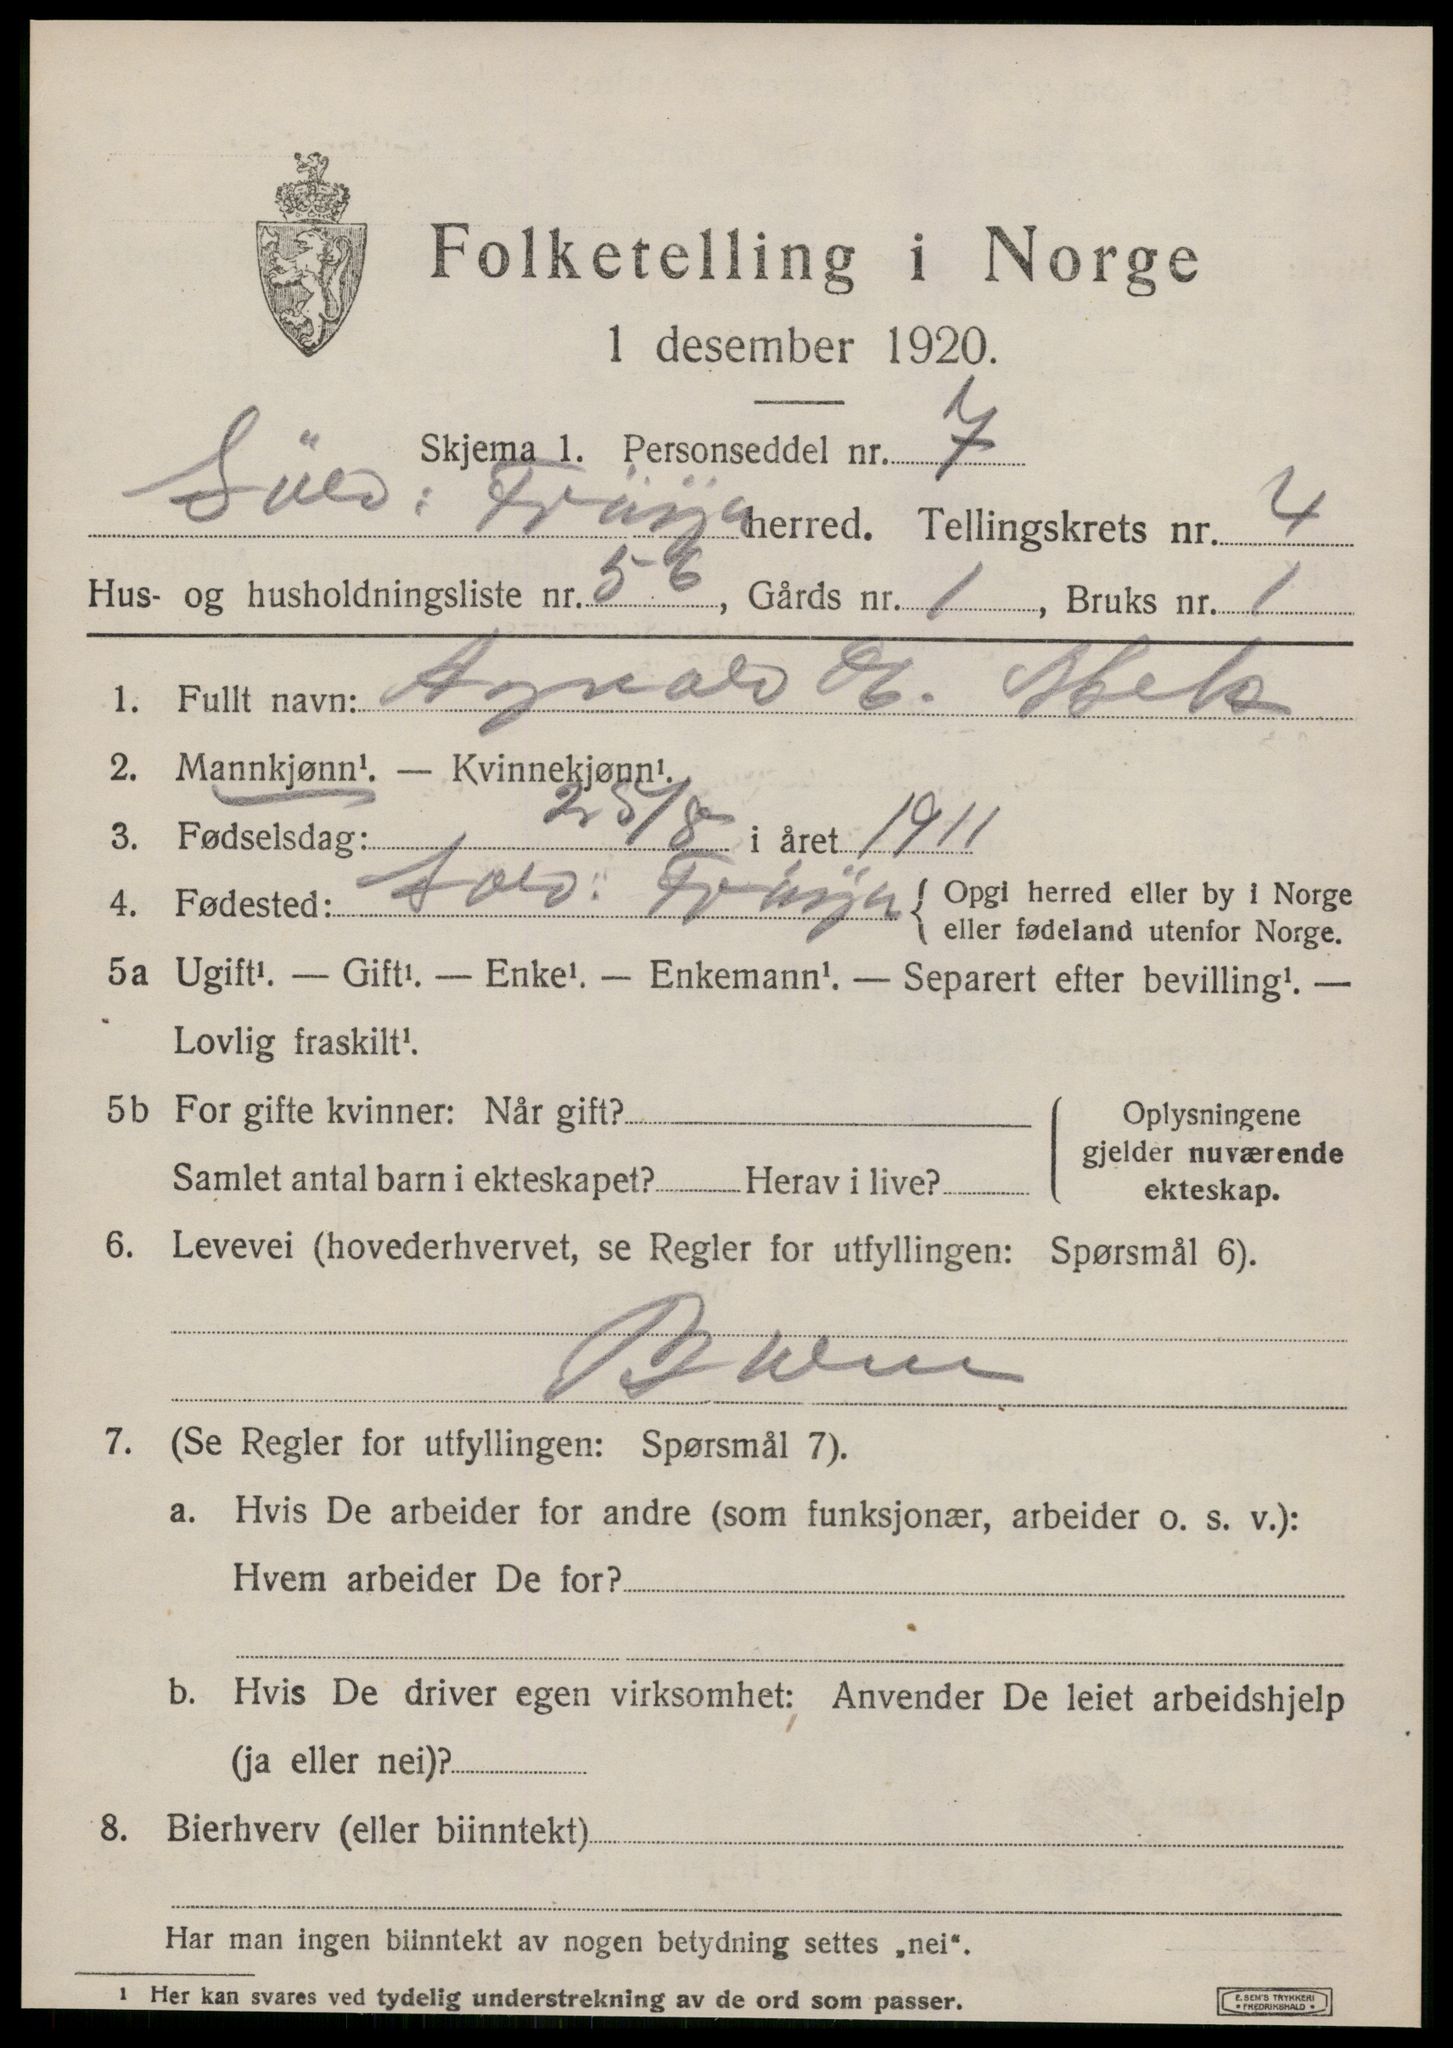 Folketelling i Norge
1 desember 1920.
Skjema 1. Personseddel nr. 7
Sør: Frøya herred. Tellingskrets nr. 4
Hus- og husholdningsliste nr. 56, Gårds nr. 1, Bruks nr. 1
1. Fullt navn:
2. Mannkjønn¹. — Kvinnekjønn¹.
3. Fødselsdag: 25/8 i året 1911
4. Fødested: Frøya { Opgi herred eller by i Norge
eller fødeland utenfor Norge.
5a Ugift¹. — Gift¹. — Enke¹. — Enkemann¹. — Separert efter bevilling¹. —
Lovlig fraskilt¹.
5b For gifte kvinner: Når gift?
Samlet antal barn i ekteskapet? Herav i live?
Oplysningene
gjelder nuværende
ekteskap.
6. Levevei (hovederhvervet, se Regler for utfyllingen: Spørsmål 6).
7. (Se Regler for utfyllingen: Spørsmål 7).
a. Hvis De arbeider for andre (som funksjonær, arbeider o. s. v.):
Hvem arbeider De for?
b. Hvis De driver egen virksomhet: Anvender De leiet arbeidshjelp
(ja eller nei)?
8. Bierhverv (eller biinntekt)
Har man ingen biinntekt av nogen betydning settes „nei“.
¹ Her kan svares ved tydelig understrekning av de ord som passer.
E. SEM'S TRYKKERI
• FREDRIKSHALD •